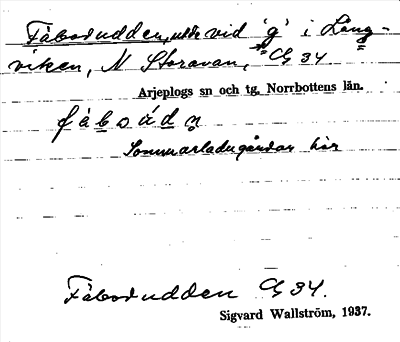 Fäbodudden, udde vid 'g' i Lång-
viken, N Storavan, Cg 34
Arjeplogs sn och tg, Norrbottens län.
fàbodn
Sommarladugårdar här
Fäbodudden Cg 34.
Sigvard Wallström, 1937.